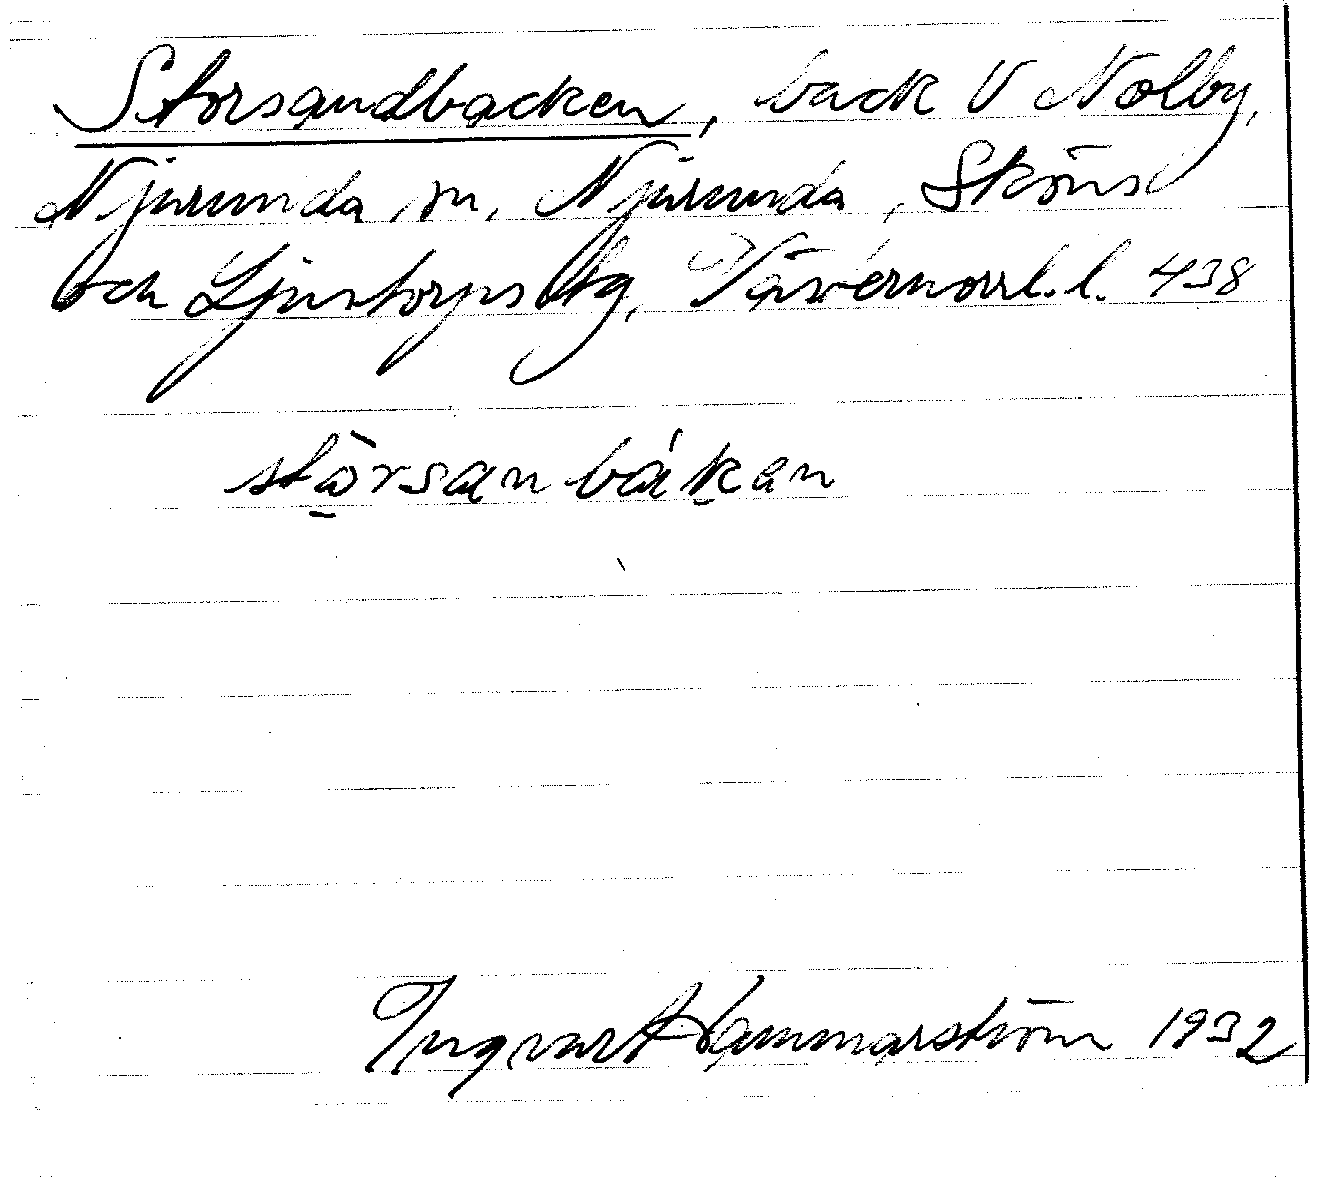 Storsandbacken, back V Nolby,
Njurunda sn, Njurunda, Sköns
och Ljustorps tlg, Västernorrl. l. 438
stòrsan bákan
Ingvar Hammarström 1932